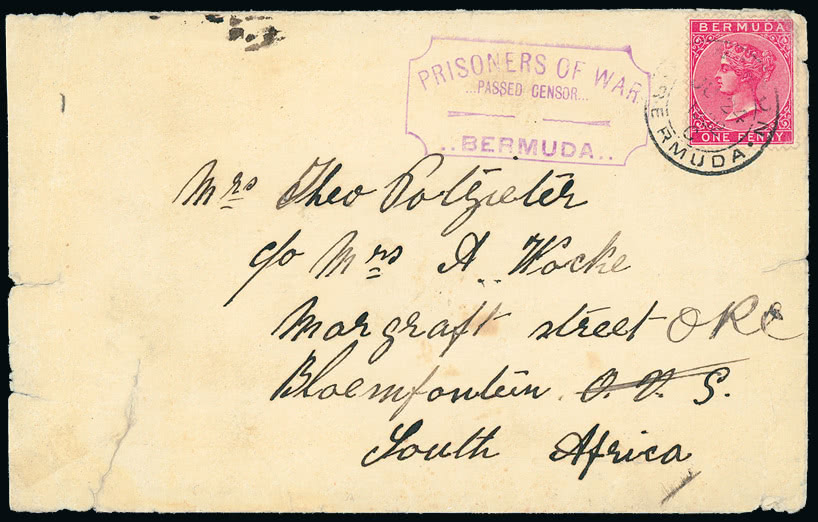 BERMUDA
ONE PENNY
PRISONERS OF WAR
...PASSED CENSOR...
..BERMUDA..
BERMUDA.
Mrs Theo Potgieter
c/o Mrs A. Wocke
Margraft street ORC
Bloemfontein O.V.S.
South Africa